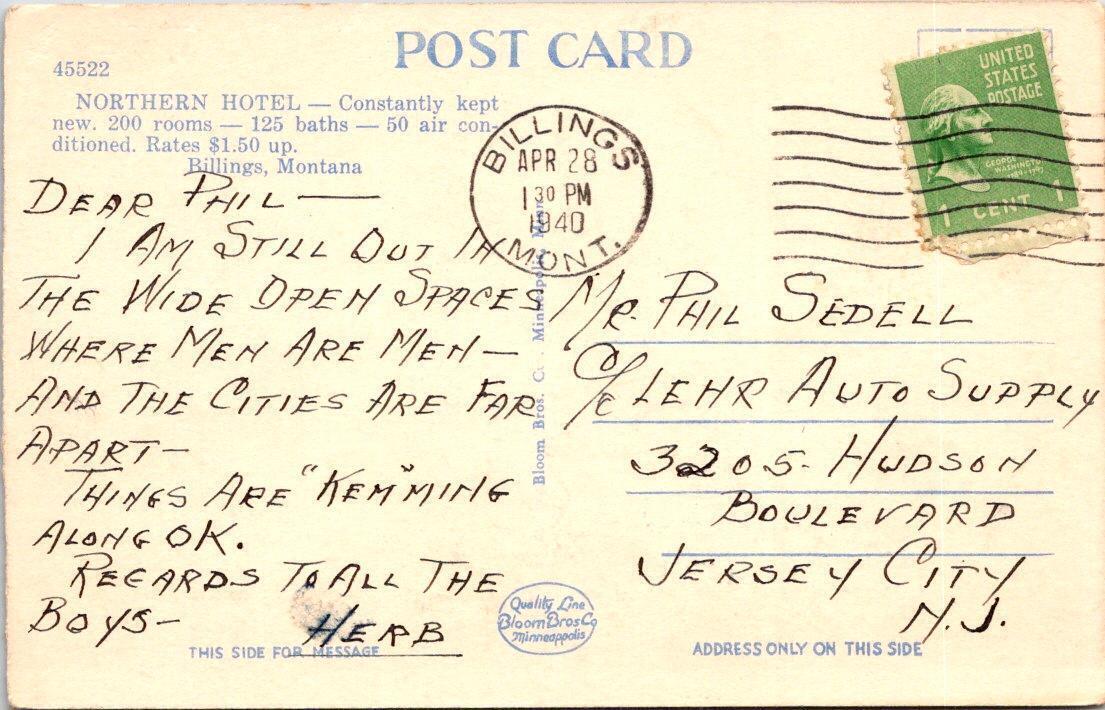 POST CARD
45522
NORTHERN HOTEL — Constantly kept
new. 200 rooms — 125 baths — 50 air con-
ditioned. Rates $1.50 up.
Billings, Montana
BILLINGS
APR 28
1 30 PM
1940
MONT.
UNITED
STATES
POSTAGE
GEORGE
WASHINGTON
1789-1797
1 CENT 1
DEAR PHIL —
I AM STILL OUT IN
THE WIDE OPEN SPACES
WHERE MEN ARE MEN —
AND THE CITIES ARE FAR
APART —
THINGS ARE "KEM"MING
ALONG OK.
REGARDS TO ALL THE
BOYS —
HERB
Bloom Bros. Co. Minneapolis, Minn.
MR. PHIL SEDELL
C/O LEHR AUTO SUPPLY
3205 - HUDSON
BOULEVARD
JERSEY CITY
N.J.
Quality Line
Bloom Bros Co
Minneapolis
THIS SIDE FOR MESSAGE
ADDRESS ONLY ON THIS SIDE